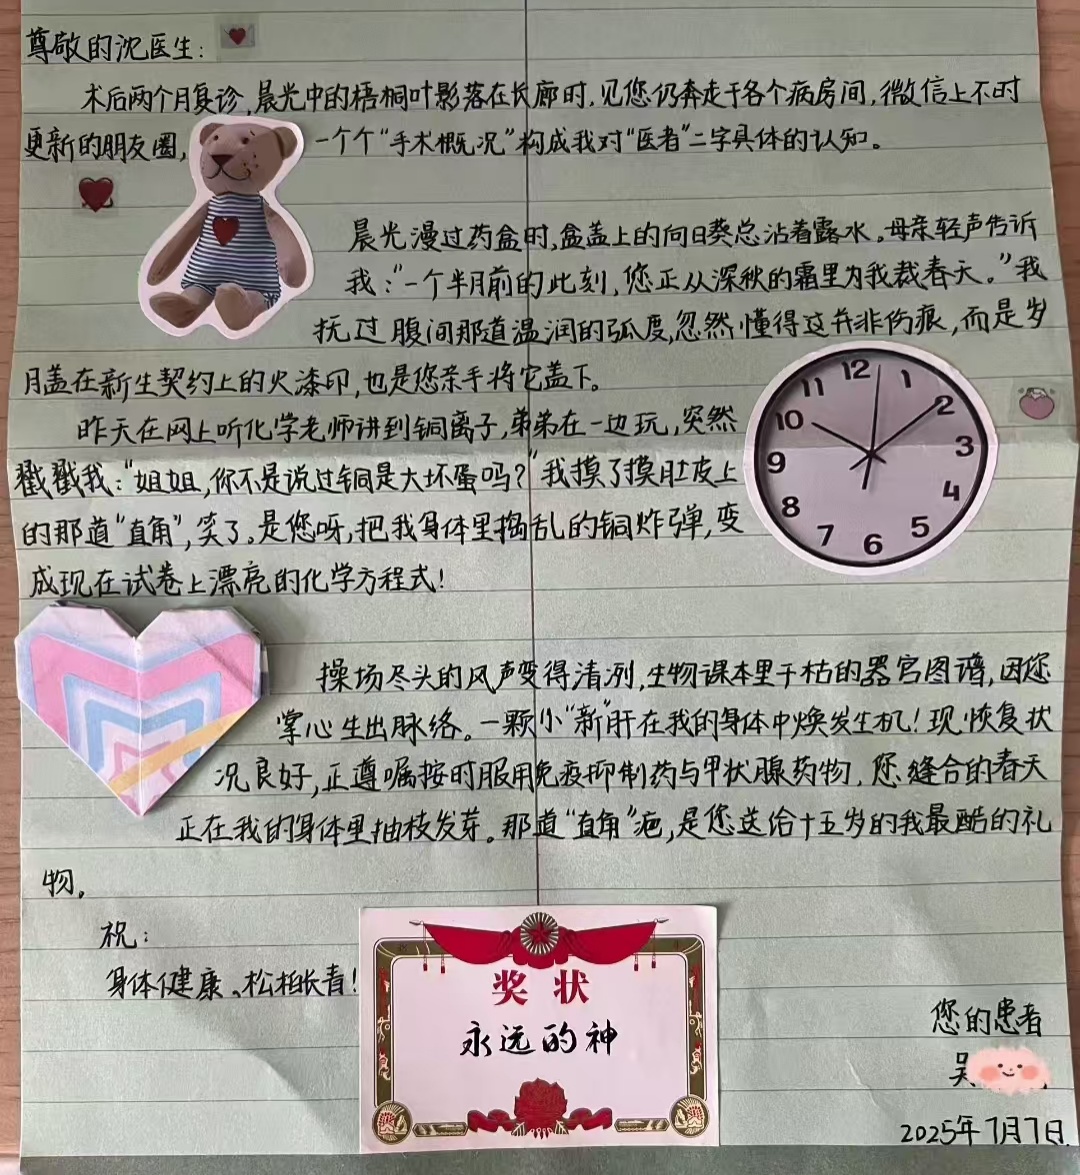 尊敬的沈医生:
术后两个月复诊,晨光中的梧桐叶影落在长廊时,见您仍奔走于各个病房间,微信上不时
更新的朋友圈,一个个“手术概况”构成我对“医者”二字具体的认知。
晨光漫过药盒时,盒盖上的向日葵总沾着露水。母亲轻声告诉
我:“一个半月前的此刻,您正从深秋的霜里为我裁春天。”我
抚过腹间那道温润的弧度,忽然懂得这并非伤痕,而是岁
月盖在新生契约上的火漆印,也是您亲手将它盖下。
昨天在网上听化学老师讲到铜离子,弟弟在一边玩,突然
戳戳我:“姐姐,你不是说过铜是大坏蛋吗?”我摸了摸肚皮上
的那道“直角”,笑了。是您呀,把我身体里捣乱的铜炸弹,变
成现在试卷上漂亮的化学方程式!
操场尽头的风声变得清冽,生物课本里干枯的器官图谱,因您
掌心生出脉络。一颗小“新”肝在我的身体中焕发生机!现恢复状
况良好,正遵嘱按时服用免疫抑制药与甲状腺药物,您缝合的春天
正在我的身体里抽枝发芽。那道“直角”疤,是您送给十五岁的我最酷的礼
物。
祝:
身体健康、松柏长青!
您的患者
吴
2025年7月7日
12
1
2
3
4
5
6
7
8
9
10
11
奖状
永远的神